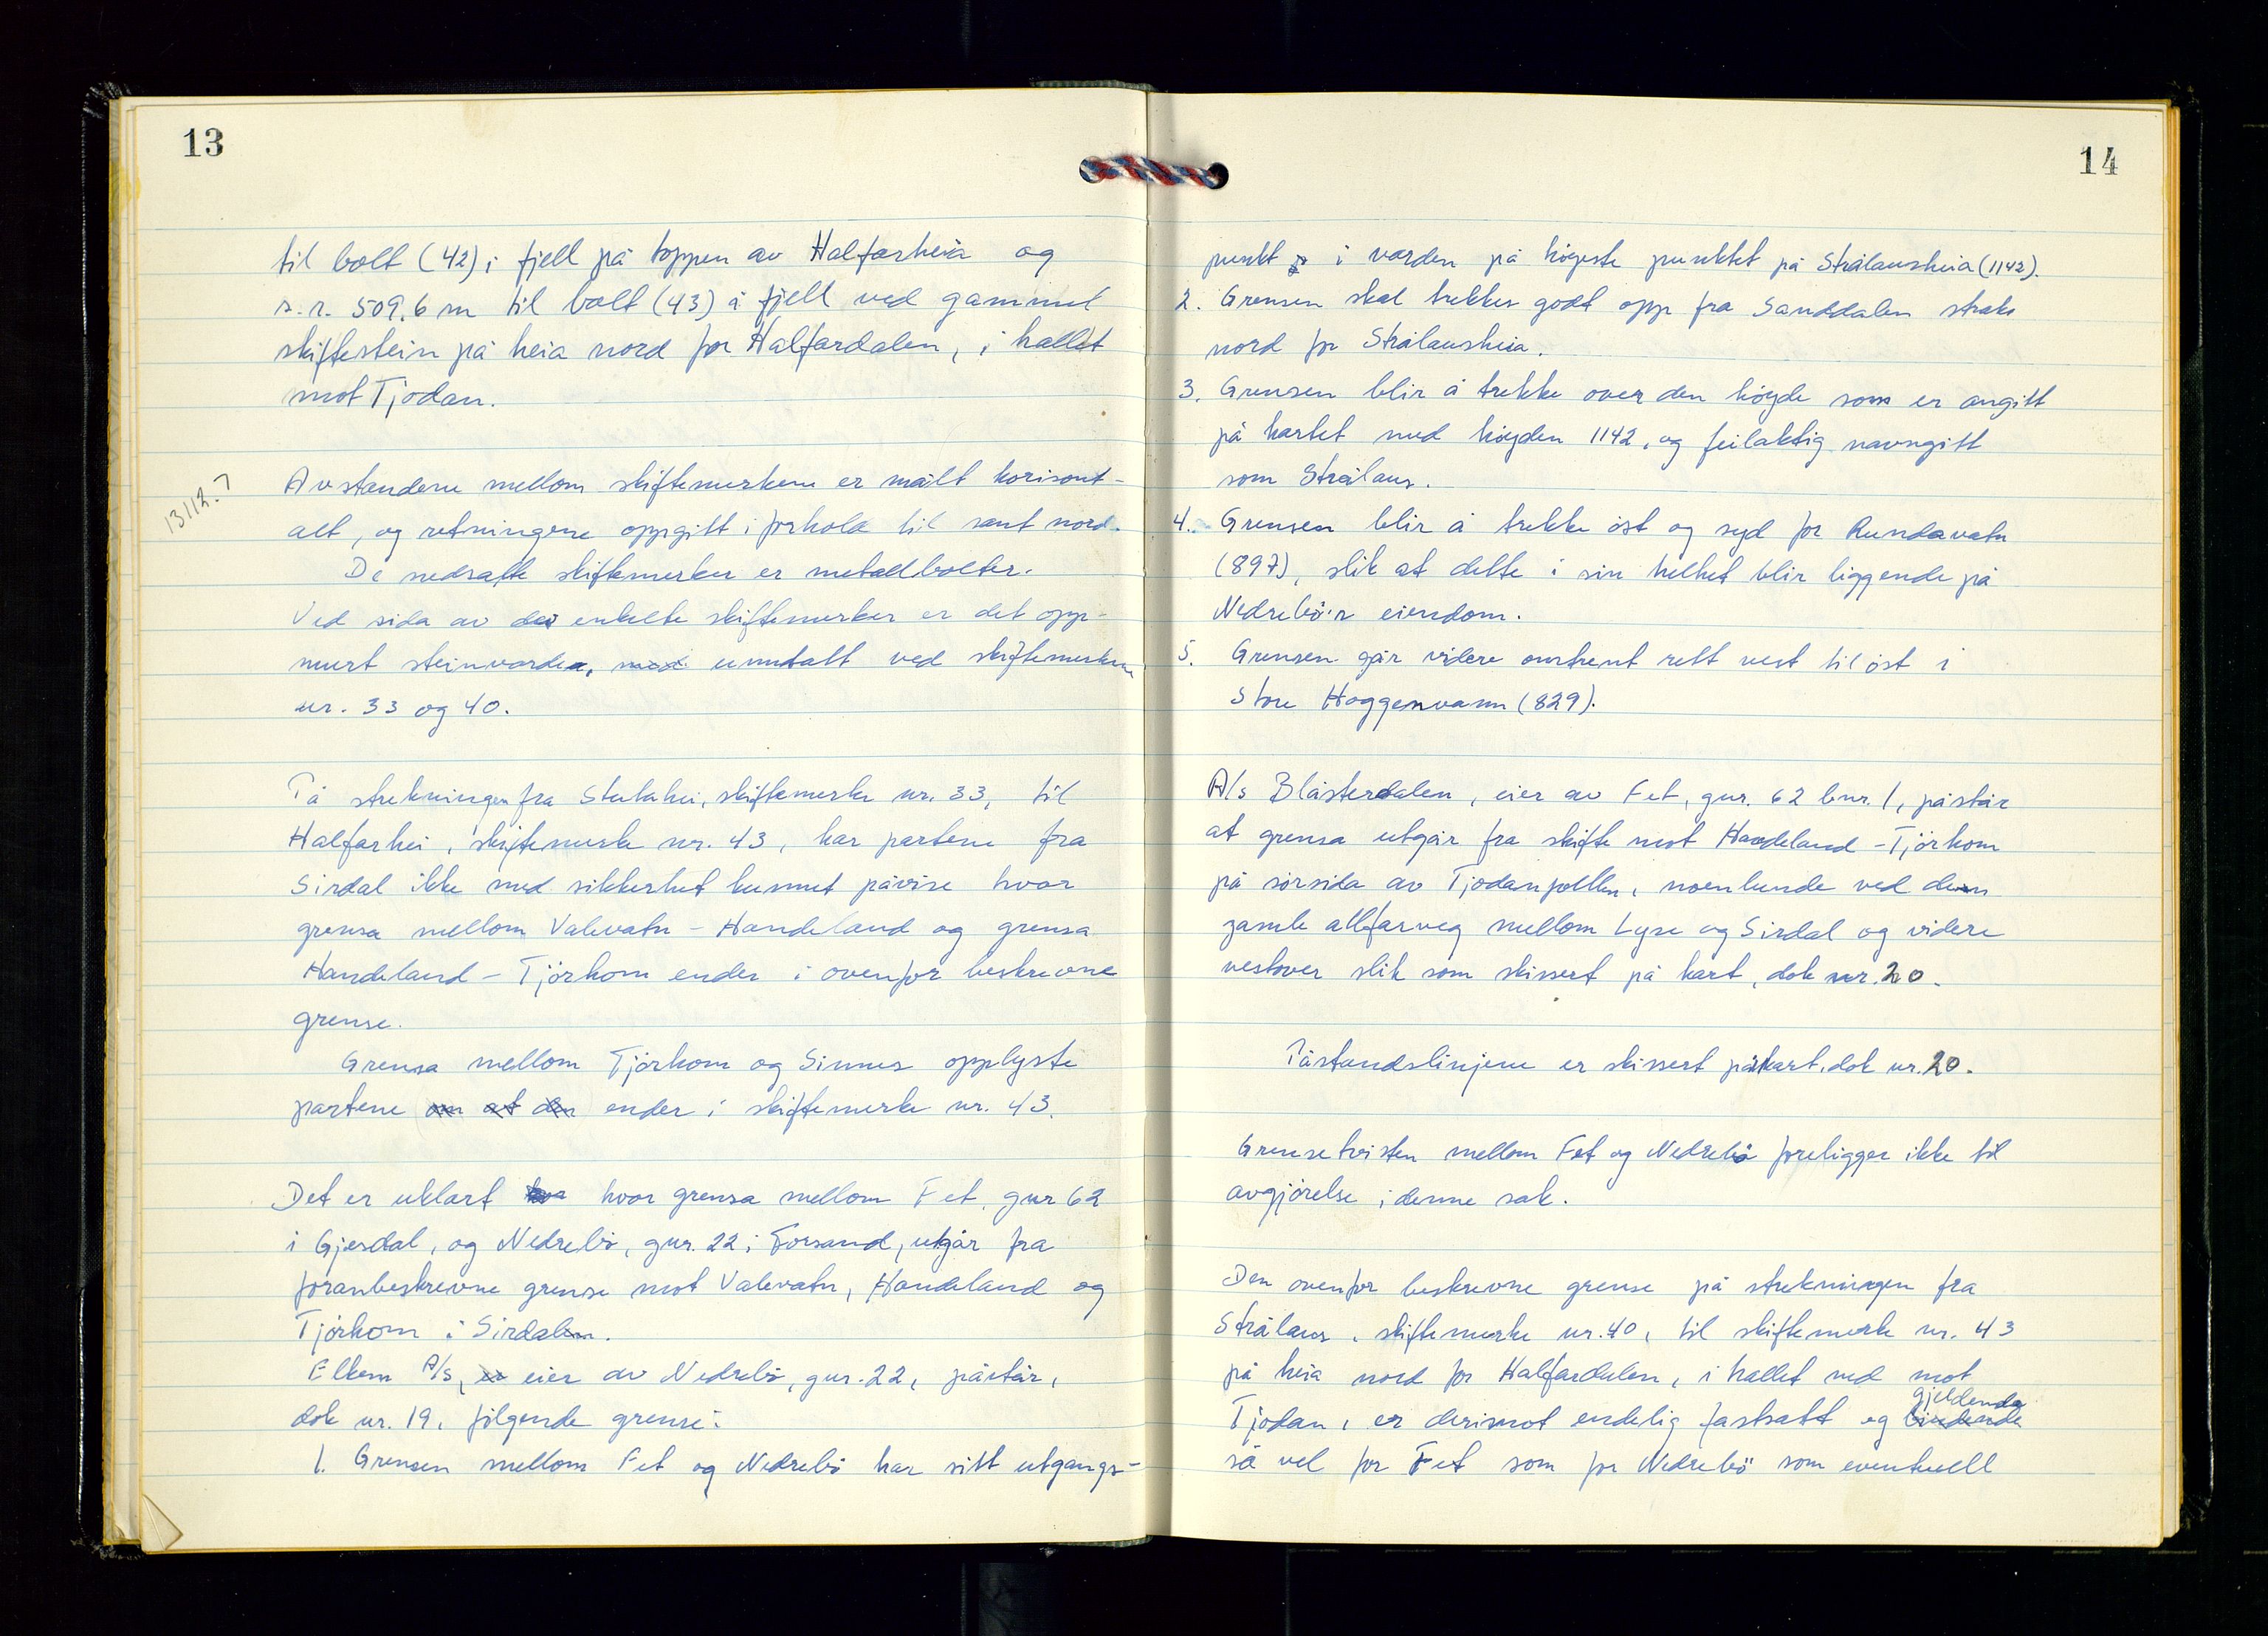 13
til bolt (42) i fjell på toppen av Halfarheia og
s.r. 509,6 m til bolt (43) i fjell ved gammel
skiftestein på heia nord for Halfardalen, i hallet
mot Tjodan.
13112.7
Avstandene mellom skiftemerkene er målt horisont-
alt, og retningene oppgitt i forhold til sant nord.
De nedsatte skiftemerker er metallbolter.
Ved sida av de enkelte skiftemerker er det opp-
murt steinvarder, med unntatt ved skiftemerkene
nr. 33 og 40.
På strekningen fra Stutahei, skiftemerke nr. 33, til
Halfarhei, skiftemerke nr. 43, har partene fra
Sirdal ikke med sikkerhet kunnet påvise hvor
grensa mellom Valevatn - Handeland og grensa
Handeland - Tjörhom ender i ovenfor beskrevne
grense.
Grensa mellom Tjörhom og Sinnes opplyste
partene om at den ender i skiftemerke nr. 43.
Det er uklart hva hvor grensa mellom Fet, gnr 62
i Gjesdal, og Nedrebö, gnr. 22 i Forsand, utgår fra
foranbeskrevne grense mot Valevatn, Handeland og
Tjörhom i Sirdalen.
Elkem A/s, er eier av Nedrebö, gnr. 22, påstår,
dok nr. 19, fölgende grense:
1. Grensen mellom Fet og Nedrebö har sitt utgangs-
14
punkt på i varden på höyeste punktet på Strålausheia (1142).
2. Grensen skal trekkes godt opp fra Sanddalen straks
nord for Strålausheia.
3. Grensen blir å trekke over den höyde som er angitt
på kartet med höyden 1142, og feilaktig navngitt
som Strålaus.
4. Grensen blir å trekke öst og syd for Rundavatn
(897), slik at dette i sin helhet blir liggende på
Nedrebö's eiendom.
5. Grensen går videre omtrent rett vest til öst i
Store Hoggenvann (829).
A/s Blåsterdalen, eier av Fet, gnr. 62 bnr. 1, påstår
at grensa utgår fra skifte mot Handeland - Tjörhom
på sörsida av Tjodanpollen, noenlunde ved den
gamle allfarveg mellom Lyse og Sirdal og videre
vestover slik som skissert på kart, dok nr. 20.
Påstandslinjene er skissert på kart, dok nr. 20.
Grensetvisten mellom Fet og Nedrebö foreligger ikke til
avgjörelse i denne sak.
Den ovenfor beskrevne grense på strekningen fra
Strålaus, skiftemerke nr. 40, til skiftemerke nr. 43
på heia nord for Halfardalen, i hallet ned mot
gjeldende
Tjodan, er derimot endelig fastsatt og bindende
så vel for Fet som for Nedrebö som eventuell